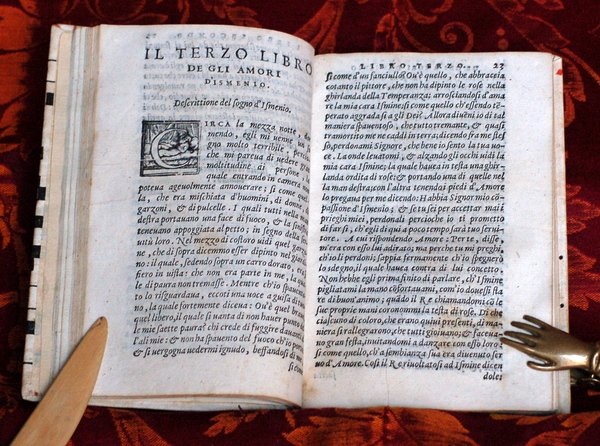 IL TERZO LIBRO
DE GLI AMORI
D'ISMENIO.
Descrittione del sogno d'Ismenio.
CIRCA la mezza notte, dor
mendo, egli mi uenne un so
gno molto terribile, perciò
che mi parea di uedere una
moltitudine di persone, la
quale entraua in camera non
potea ageuolmente annouerare; si come quel
la, che era mischiata d'huomini, di donne, di
garzoni, & di pulcelle. I quali tutti nella man
destra portauano una face di fuoco, & la sinistra
teneuano appoggiata al petto; in segno della
tutù loro. Nel mezzo di costoro uidi quel
ne, che di sopra dicemmo esser dipinto nel giar
no: il quale, sedendo sopra un carro dorato, era
fiero in uista: che non era parte in me, la qua
le di paura non tremasse. Mentre ch'io spauen
to lo risguardaua, eccoti una uoce a guisa di
na, la quale fortemente diceua: Ou'è quel
quel libero, il quale si uanta di non hauer punto
le mie saette paura? chi crede di fuggire dauan
l'ali mie: & non ha spauento del fuoco ch'io
& si uergogna uedermi ignudo, beffandosi di
si come
LIBRO TERZO. 23
si come d'un fanciullo? Ou'è quello, che abbraccia
cotanto il pittore, che non ha dipinto le rose nella
ghirlanda della Temperanza; arrosciandosi d'ama
re la mia cara Ismine; si come quello ch'essendo tem
perato aggrada si a gli Dei? Allora diuēni io di tal
maniera spauentoso, che tutto tremante, & quasi
tramortito me ne caddi in terra; dicendo fra me stes
so, perdonami Signore, che bene in sento la tua uo
ce. La onde leuatomi, & alzando gli occhi uidi la
mia cara Ismine; la quale in testa haueua una ghir
landa ordita di rose: & portando una di quelle nel
la man destra; con l'altra tenendo i piedi d'Amore
lo pregaua per me dicendo: Habbia Signor mio cō
passione d'Ismenio; & se tu sei per accettar mai
preghi miei, perdonali percioche io ti prometto
di far sì, ch'egli di quì a poco tempo sarà tuo seruo.
A cui rispondendo Amore: Per te, disse,
m'era con esso lui adirato; ma perche tu mi preghi,
ch'io gli perdoni; sappia fermamente ch'io spegnerò
lo sdegno, il qual hauea contra di lui concetto.
Non hebbe egli prima finito di parlare, ch'Ismine
pigliatami la mano cōfortauami, com'io douessi sta
re di buon'animo; quādo il Re chiamandomi cō le
sue proprie mani coronommi la testa di rose. Di che
ciascuno di coloro, che erano quiui presenti, di ma
niera si rallegrarono, che tutti gioiuano; & faceua
no gran festa, inuitandomi a danzare con esso loro;
si come quello, ch'a sembianza sua era diuenuto ser
uo d'Amore. Così il Re riuoltatosi ad Ismine dicen
dole: